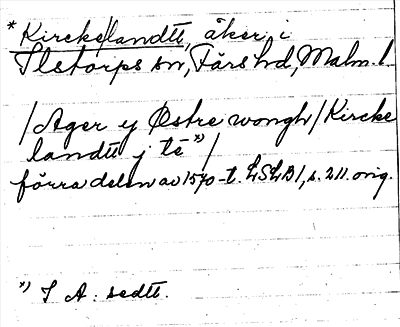 *Kirckelandtt, åker i
Ilstorps sn, Färs hd, Malm. l.
/Ager y Østre wongh/Kircke
landtt j tē x)/
förra delen av 1570-t. LSLB 1, s. 211. orig.
x) I A: sedtt.